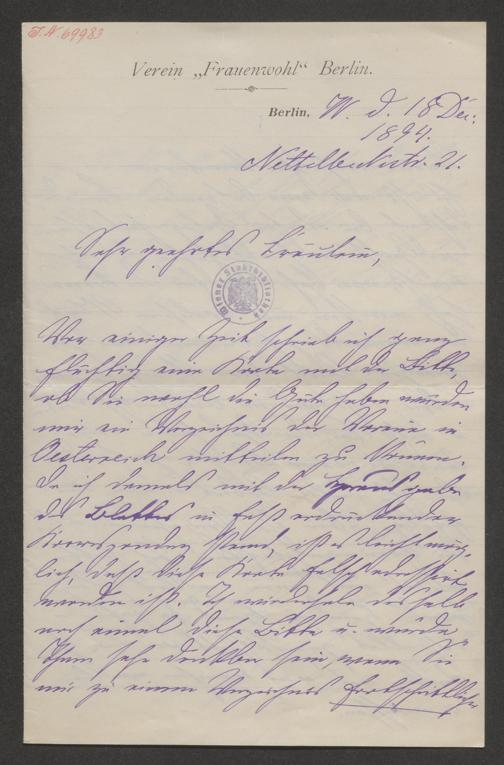 J. N. 69983
Verein „Frauenwohl“ Berlin.
Berlin, W. d. 18 Dec.
1894.
Nettelbeckstr. 21.
Sehr geehrtes Fräulein,
Wiener Stadtbibliothek
Vor einiger Zeit schrieb ich ganz
flüchtig eine Karte mit der Bitte,
ob Sie wohl die Güte haben würden
mir ein Verzeichnis der Vereine in
Oesterreich mitteilen zu können.
Da ich damals mit der Herausgabe
des Blattes in fast erdrückender
Korrespondenz stand, ist es leicht mög-
lich, daß diese Karte falsch adressirt
worden ist. Ich wiederhole deshalb
noch einmal diese Bitte u. würde
Ihnen sehr dankbar sein, wenn Sie
mir zu einem Verzeichnis fortschrittlicher